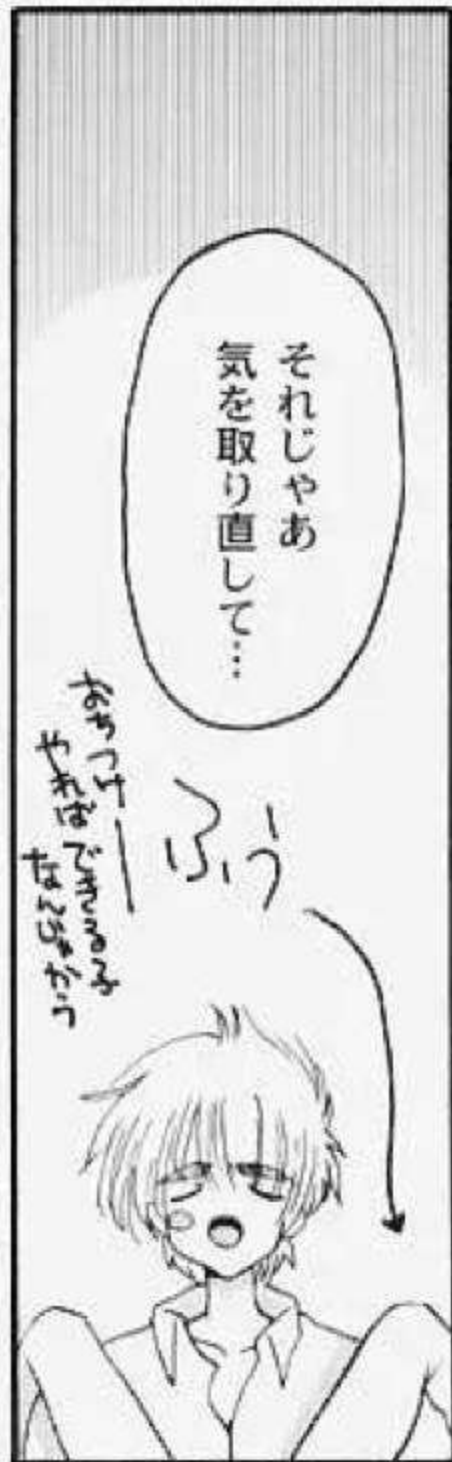 それじゃあ
気を取り直して…
ふぅ
おちつけー
やればできる子
なんじゃから